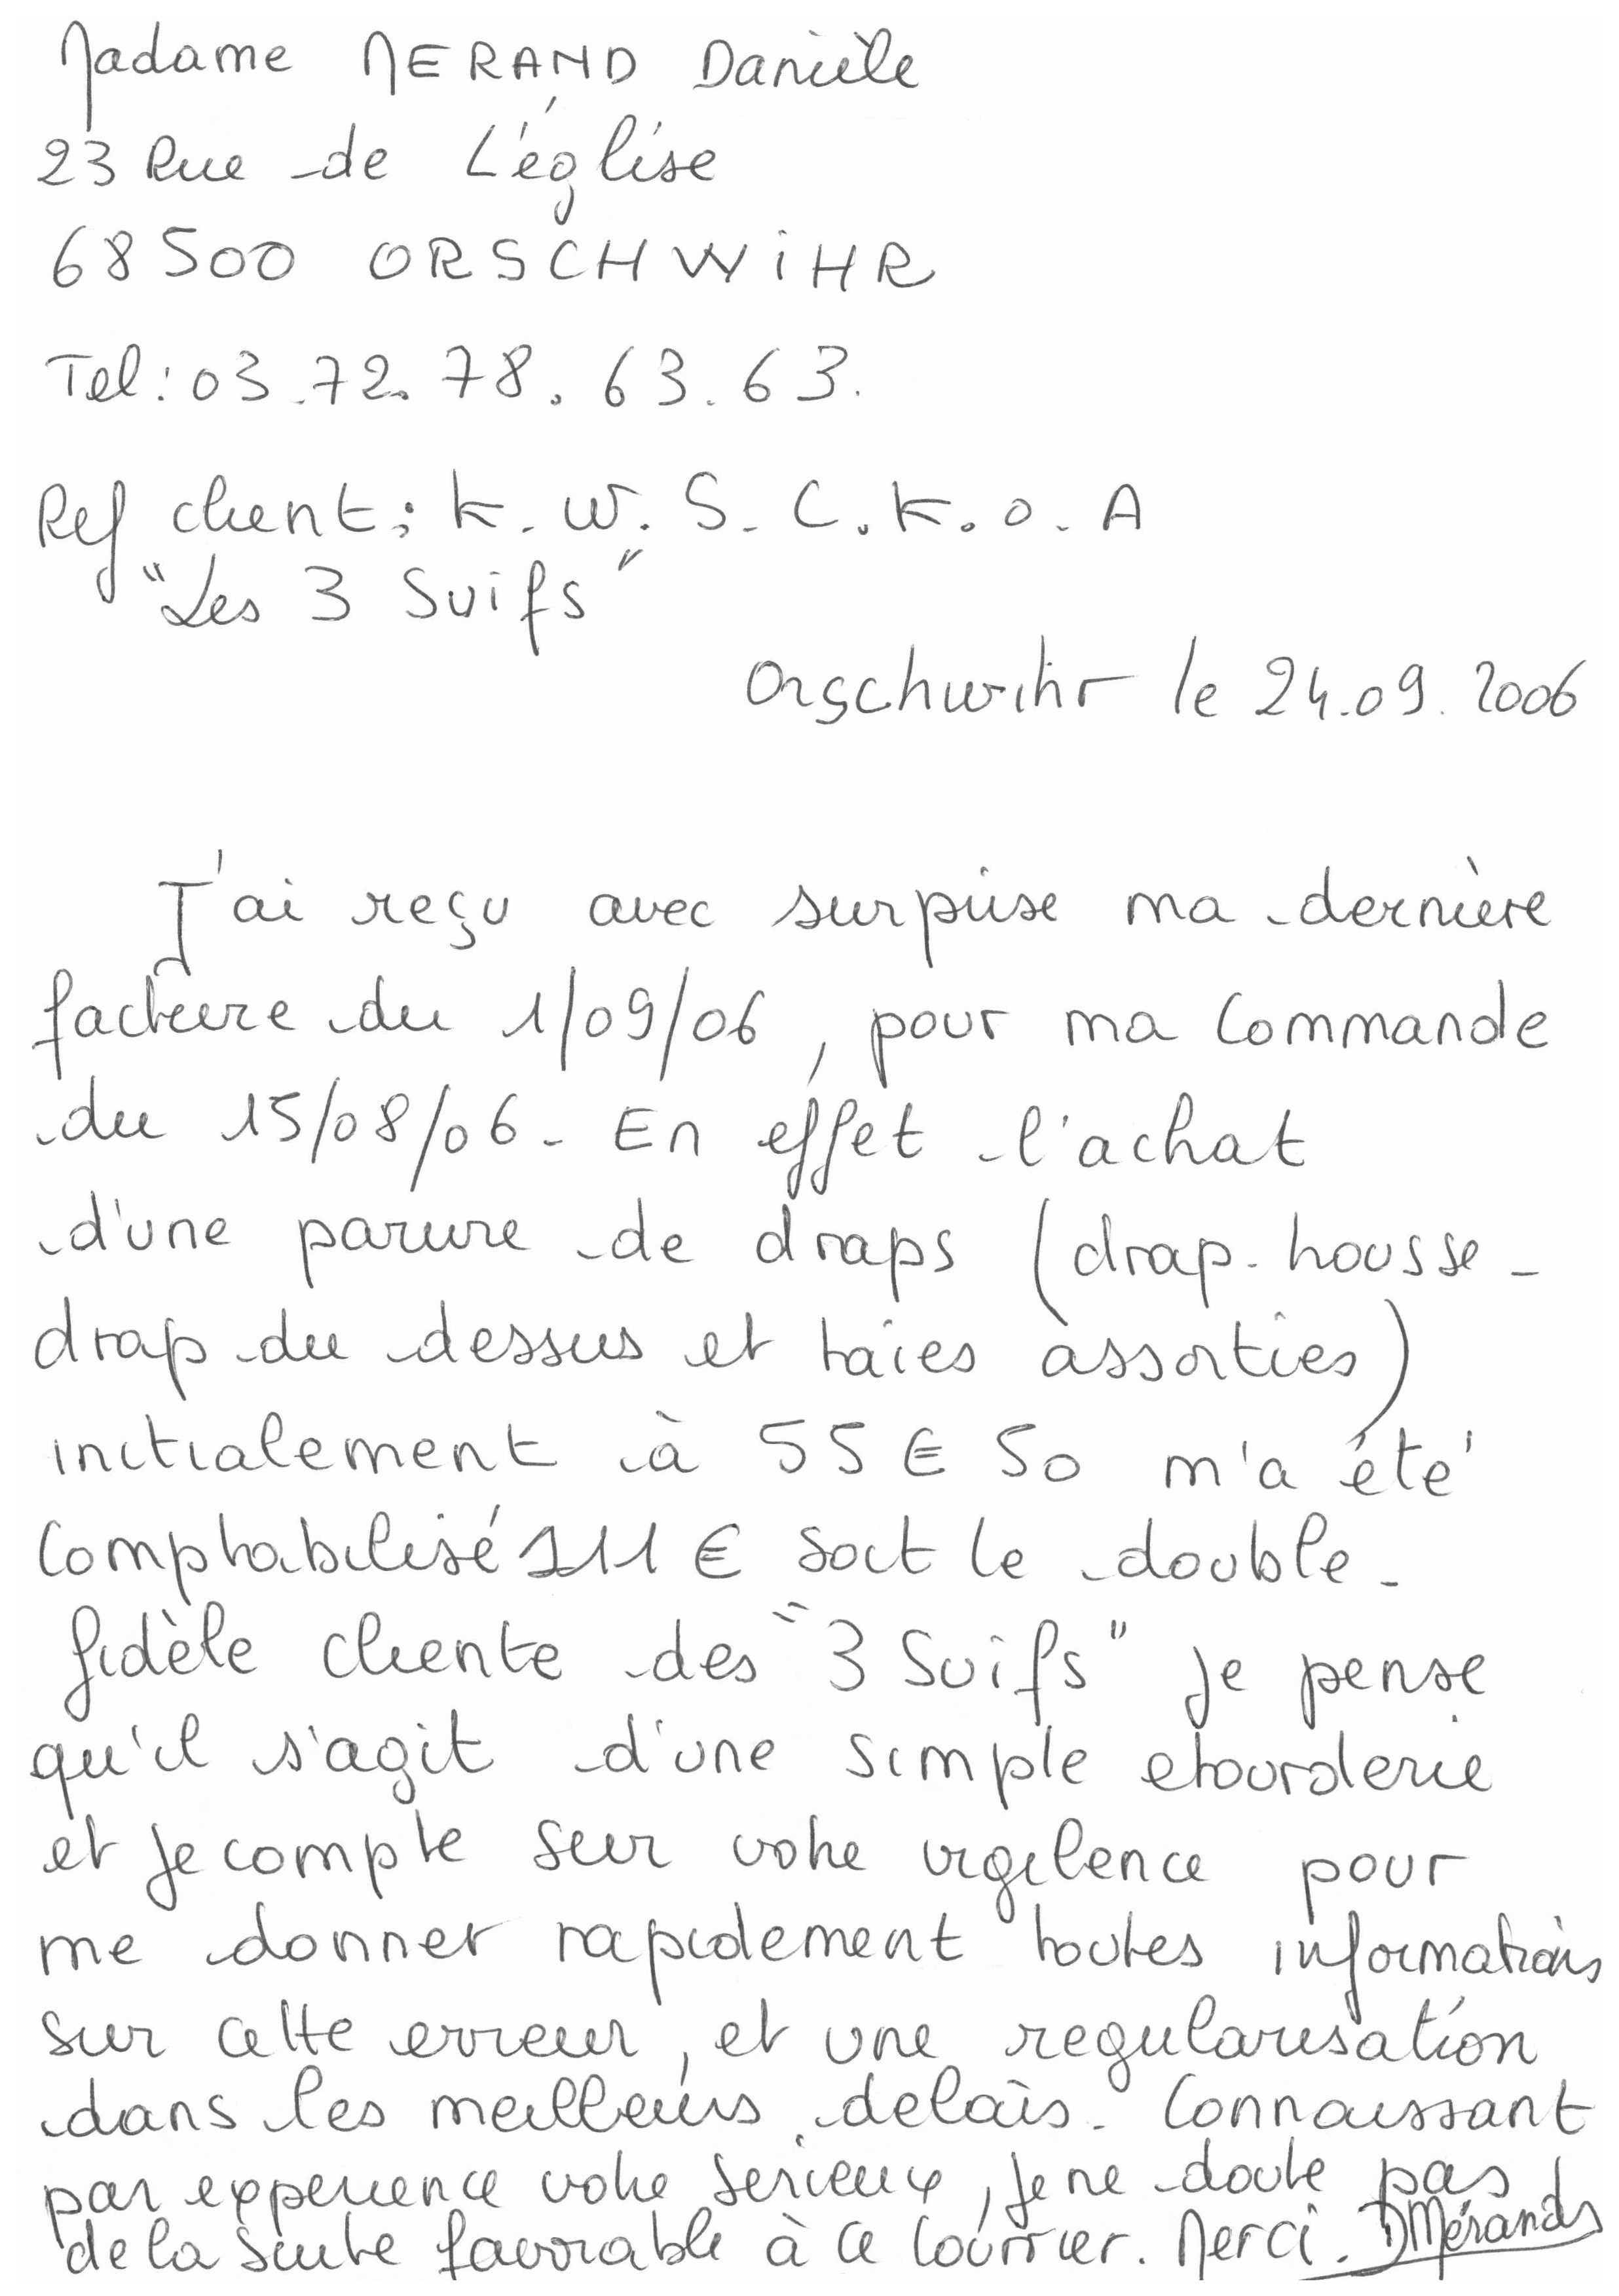 Madame MERAND Danièle
23 Rue de L'église
68500 ORSCHWiHR
Tel: 03.72.78.63.63.
Ref client: K.W.S.C.K.O.A
"Les 3 Suifs"
Orschwihr le 24.09.2006
J'ai reçu avec surprise ma dernière
facture du 1/09/06, pour ma Commande
du 15/08/06. En effet l'achat
d'une parure de draps (drap-housse-
drap du dessus et taies assorties)
initialement à 55 € 50 m'a été
Comptabilisé 111 € soit le double.
fidèle cliente des "3 Suifs" je pense
qu'il s'agit d'une simple etourderie
et je compte sur votre vigilence pour
me donner rapidement toutes informations
sur cette erreur, et une regularisation
dans les meilleurs delais. Connaissant
par experience votre serieux, je ne doute pas
de la suite favorable à ce Courrier. Merci. DMérand